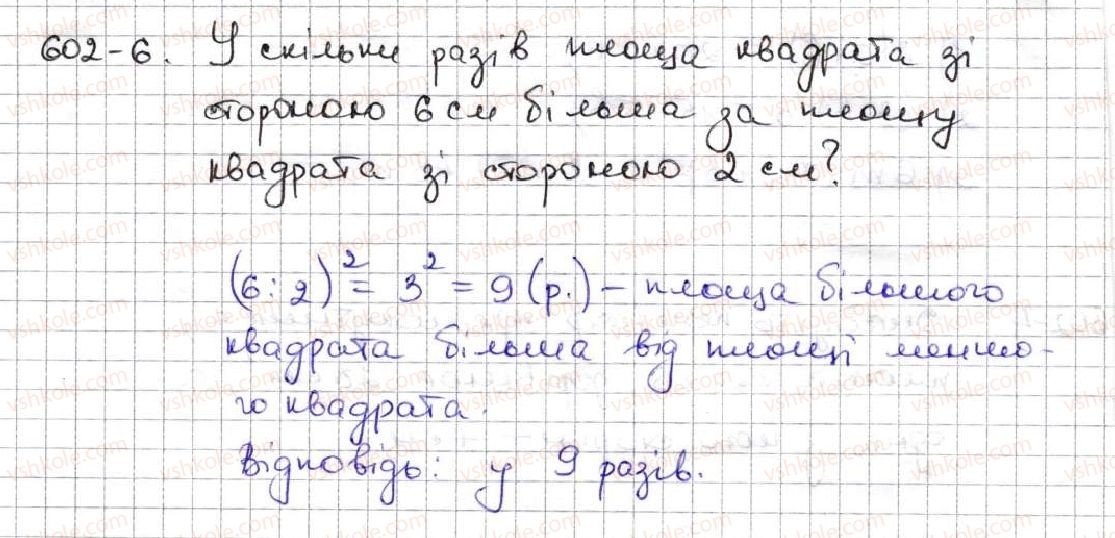 602-6. У скільки разів площа квадрата зі
стороною 6 см більша за площу
квадрата зі стороною 2 см?
(6:2)² = 3² = 9 (р.) – площа більшого
квадрата більша від площі меншо-
го квадрата.
Відповідь: у 9 разів.